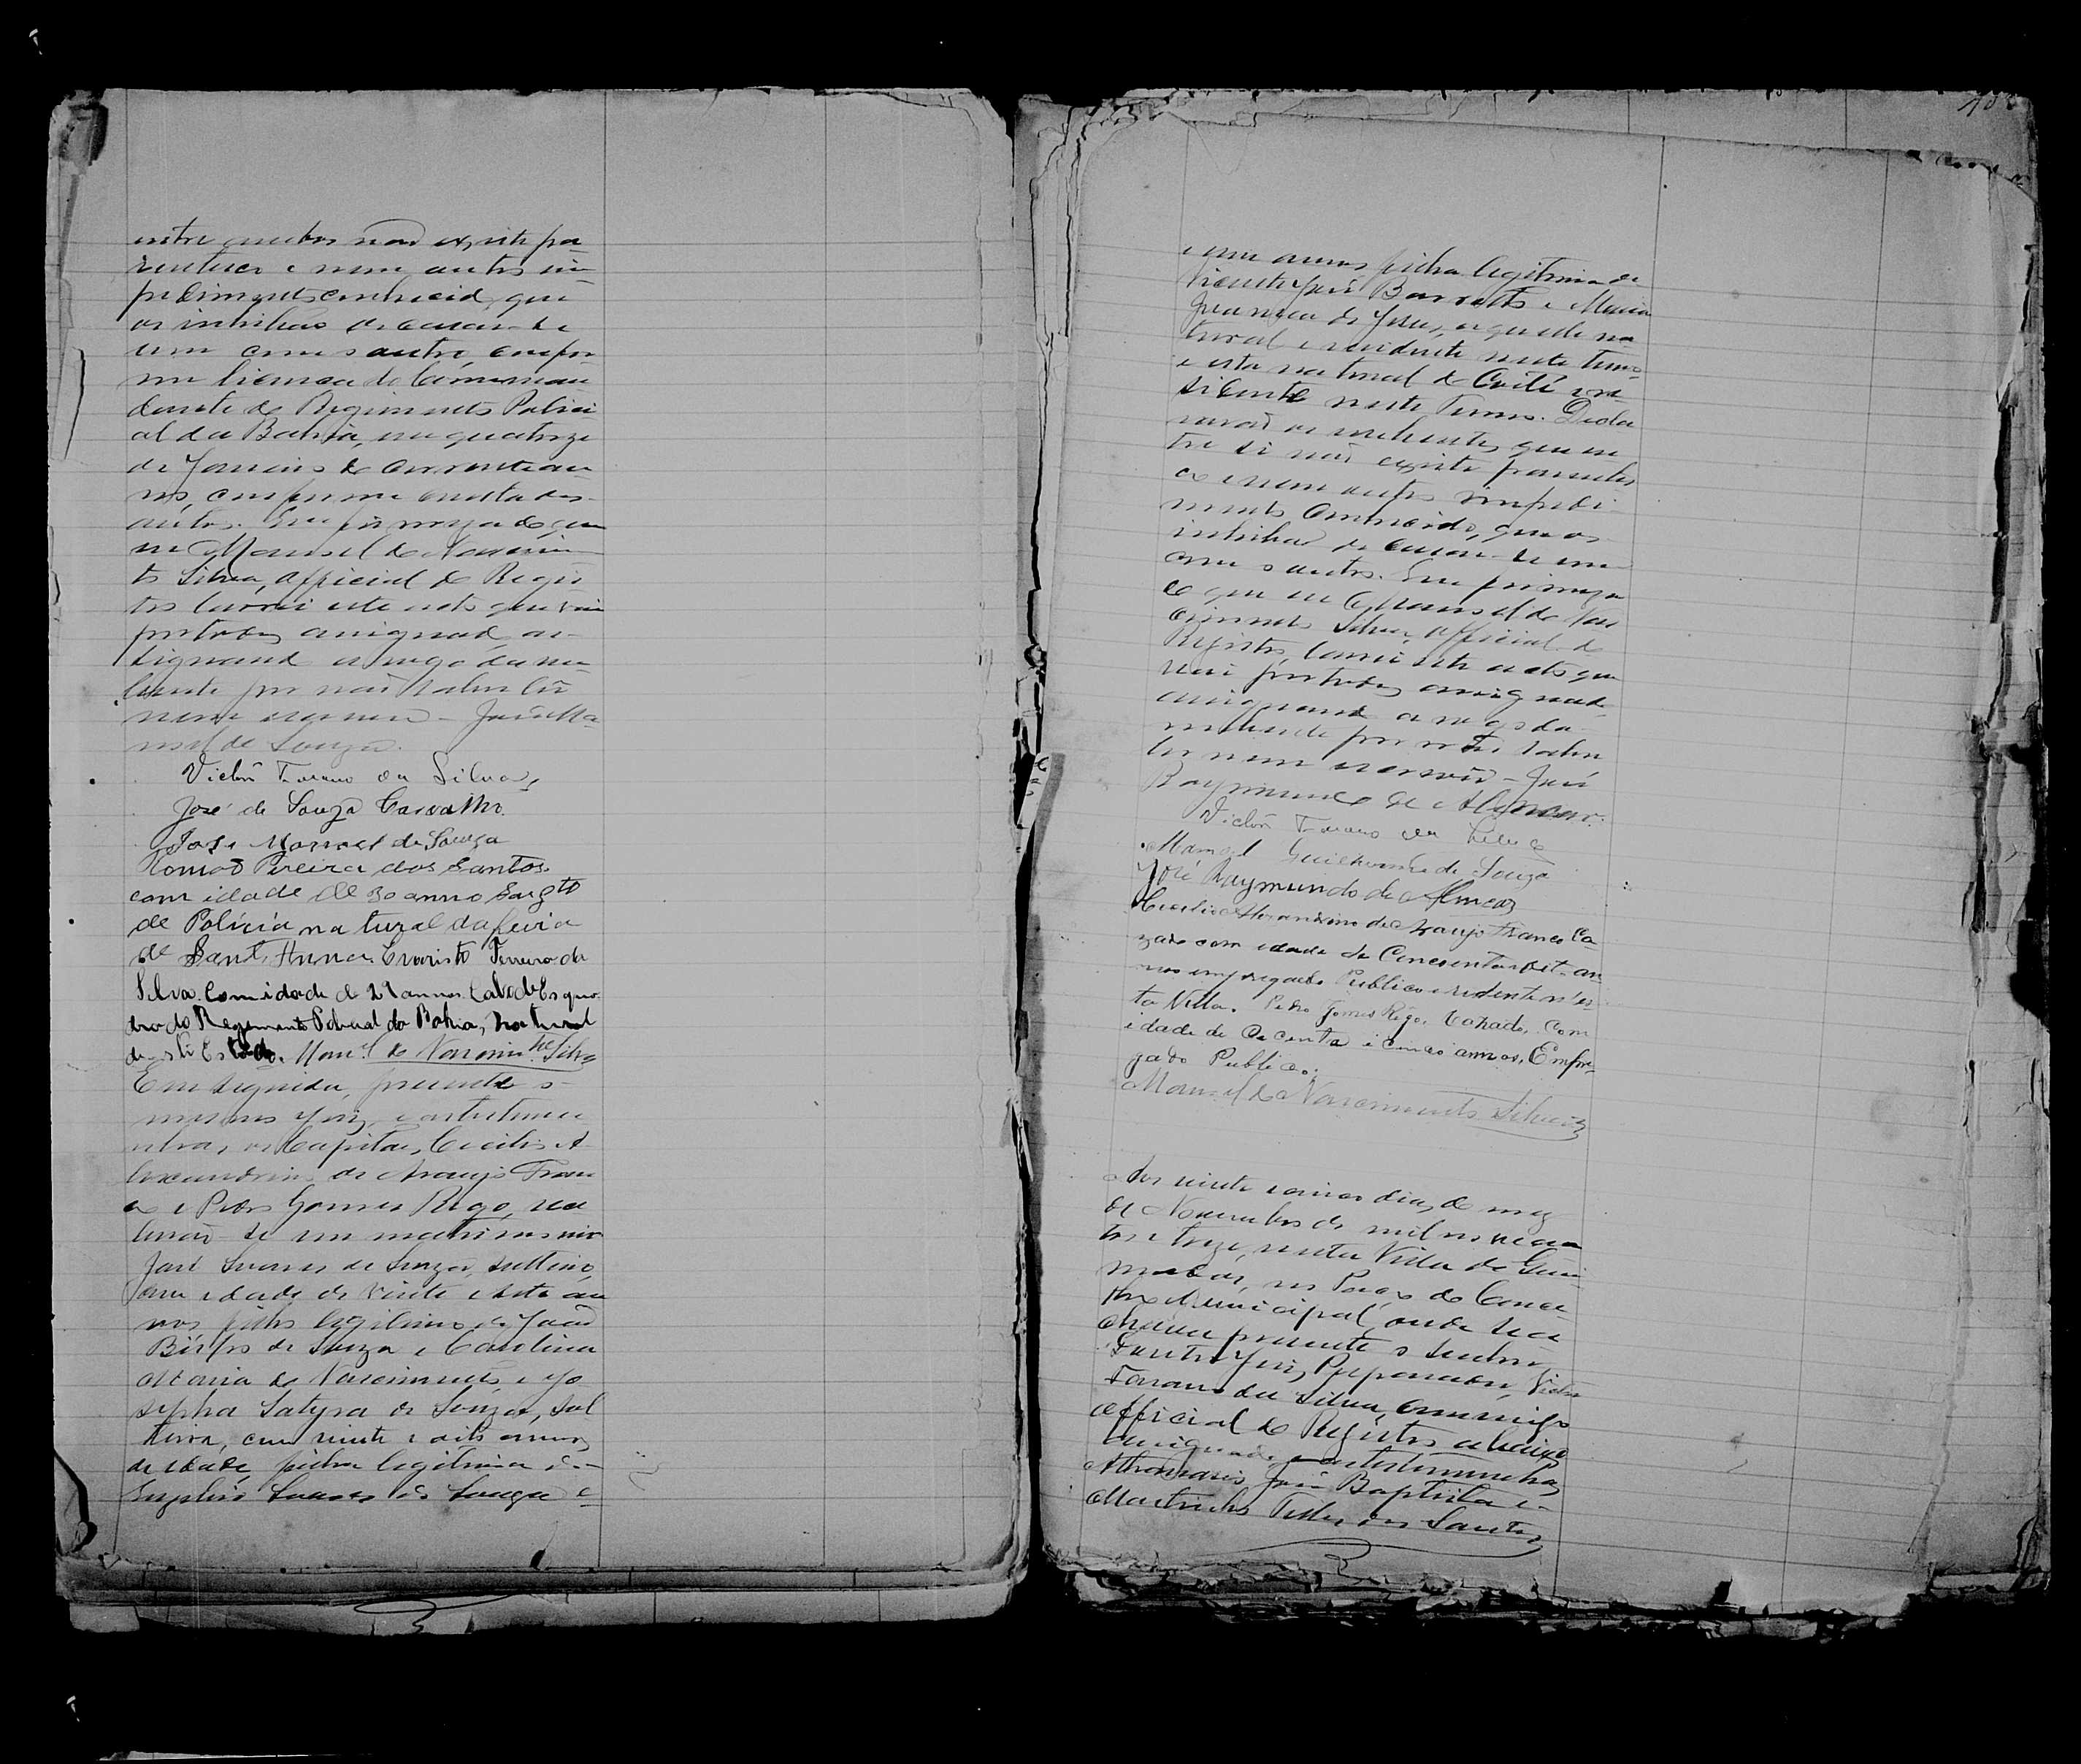 entre ambos não existe pa-
rentesco e nem outro im-
pedimento conhecido, que
os inhiba de casar-se
um com o outro, confor-
me licença do Comman-
dante do Regimento Polici-
al da Bahia, em quatorze
de Janeiro do corrente an-
no, conforme consta dos
autos. Em firmeza do que
eu Manoel do Nascimen-
to Silva, Official do Regis-
tro lavrei este acto que vai
por todos assignado, as-
signando a rogo da nu-
bente por não saber lêr
nem escrever - José Ma-
noel de Souza.
Victor Torano da Silva,
José de Souza Carvalho.
José Manoel de Souza
Romão Pereira dos Santos
com idade de 30 anno Sargto
de Policia natural da feira
de Sant'Anna. Evaristo Ferreira da
Silva. Com idade de 29 annos. Cabo de Esqua-
dra do Regimento Policial da Bahia, natural
deste Estado. Manoel do Nascimto Silva
Em seguida, presente o
mesmo Juiz, e as testemu-
nhas, os Capitães, Cecilio A-
lexandrino de Araujo Fran-
co e Pedro Gomes Rego, rece-
berão-se em matrimonio
José Soares de Souza, solteiro,
com idade de vinte e sete an-
nos, filho legitimo de João
Bispo de Souza e Carolina
Maria do Nascimento, e Jo-
sepha Satyra de Souza, sol-
teira, com vinte e oito annos
de idade, filha legitima de
Soares de Souza e
annos, filha legitima de
Vicente José Barreto e Maria
Francisca de Jesus, aquelle na-
tural e residente neste termo
e esta natural de Coité e re-
sidente neste Termo. Decla-
rarão os nubentes, que en-
tre si não existe parentes-
co e nem outro impedi-
mento conhecido, que os
inhiba de casar-se um
com o outro. Em firmeza
do que eu Manoel do Nas-
cimento Silva, Official do
Registro, lavrei este acto que
vai por todos assignado,
assignando a rogo da
nubente por não saber
ler nem escrever - José
Raymundo de Alencar.
Victor Torano da Silva
Manoel Guilherme de Souza
José Raymundo de Alencar
Araujo Franco Ca-
zado com idade de Concoenta oit- an-
nos empregado Publico e residente n'es-
ta Villa. Pedro Gomes Rêgo, Cazado, Com
idade de e cinco annos, Empre-
gado Publico.
Manoel do Nascimento Silva
Aos vinte e cinco dias do mez
de Novembro de mil novecen-
tos e treze, nesta Villa de
no Paço do Conse-
lho Municipal, onde se a-
chava presente o Senhor
Juiz Preparador, Victor
Torano da Silva, commigo
Official do Registro abaixo
assignado e as testemunhas
Athanasio José Baptista e
Telles dos Santos